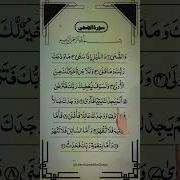 سورة الضحى
بسم الله الرحمن الرحيم
وَالضُّحَىٰ ۝ وَاللَّيْلِ إِذَا سَجَىٰ ۝ مَا وَدَّعَكَ
رَبُّكَ وَمَا قَلَىٰ ۝ وَلَلْآخِرَةُ خَيْرٌ لَّكَ مِنَ
الْأُولَىٰ ۝ وَلَسَوْفَ يُعْطِيكَ رَبُّكَ فَتَرْضَىٰ ۝
أَلَمْ يَجِدْكَ يَتِيمًا فَآوَىٰ ۝ وَوَجَدَكَ ضَالًّا
فَهَدَىٰ ۝ وَوَجَدَكَ عَائِلًا فَأَغْنَىٰ ۝ فَأَمَّا
الْيَتِيمَ فَلَا تَقْهَرْ ۝ وَأَمَّا السَّائِلَ فَلَا تَنْهَرْ ۝
وَأَمَّا بِنِعْمَةِ رَبِّكَ فَحَدِّثْ ۝